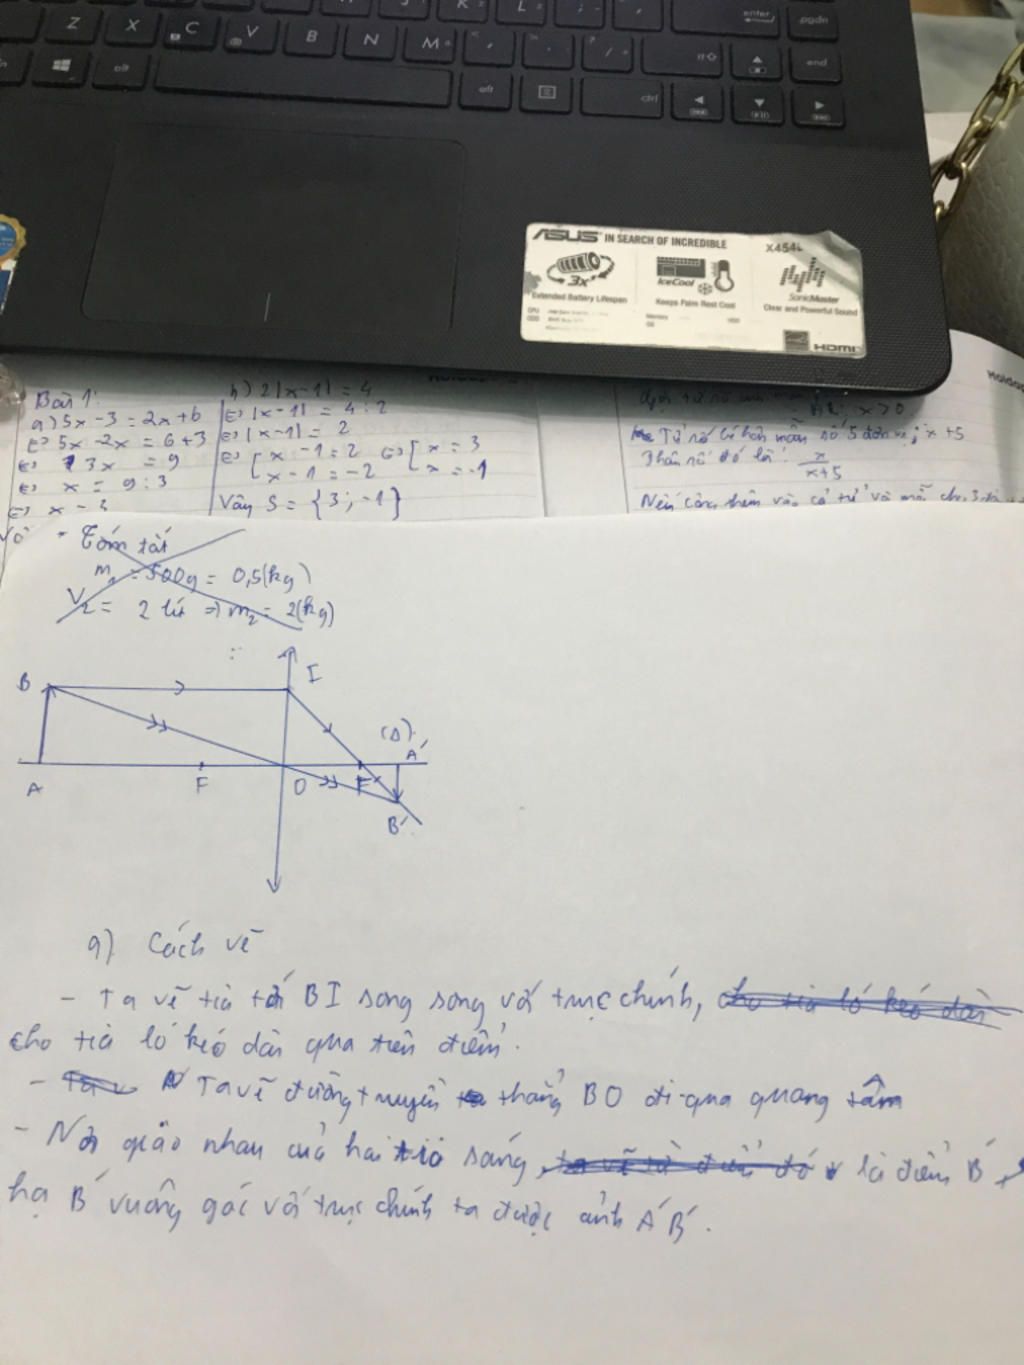 Z X C V B N M
enter
pgdn
alt
alt
ctrl
end
ASUS IN SEARCH OF INCREDIBLE
3x
IceCool
SonicMaster
Extended Battery Lifespan
Keeps Palm Rest Cool
Clear and Powerful Sound
HDMI
Bài 1:
a) 5x - 3 = 2x + 6
⇔ 5x - 2x = 6 + 3
⇔ 3x = 9
⇔ x = 9 : 3
⇔ x = 3
b) 2|x - 1| = 4
⇔ |x - 1| = 4 : 2
⇔ |x - 1| = 2
⇔ [x - 1 = 2 ⇔ [x = 3
x - 1 = -2 x = -1
Vậy S = {3; -1}
x > 0
Tử số bé hơn mẫu số 5 đơn vị: x + 5
Phân số đó là: x/(x+5)
Nếu cộng thêm vào cả tử và mẫu cho 3
- Tóm tắt
m1 = 500g = 0,5(kg)
V2 = 2 lít ⇒ m2 = 2(kg)
B
I
(Δ)
A'
A
F
O
F'
B'
a) Cách vẽ
- Ta vẽ tia tới BI song song với trục chính, cho tia ló kéo dài
cho tia ló kéo dài qua tiêu điểm.
- Ta vẽ đường truyền thẳng BO đi qua quang tâm
- Nơi giao nhau của hai tia sáng, ta vẽ từ điểm đó là điểm B',
hạ B' vuông góc với trục chính ta được ảnh A'B'.